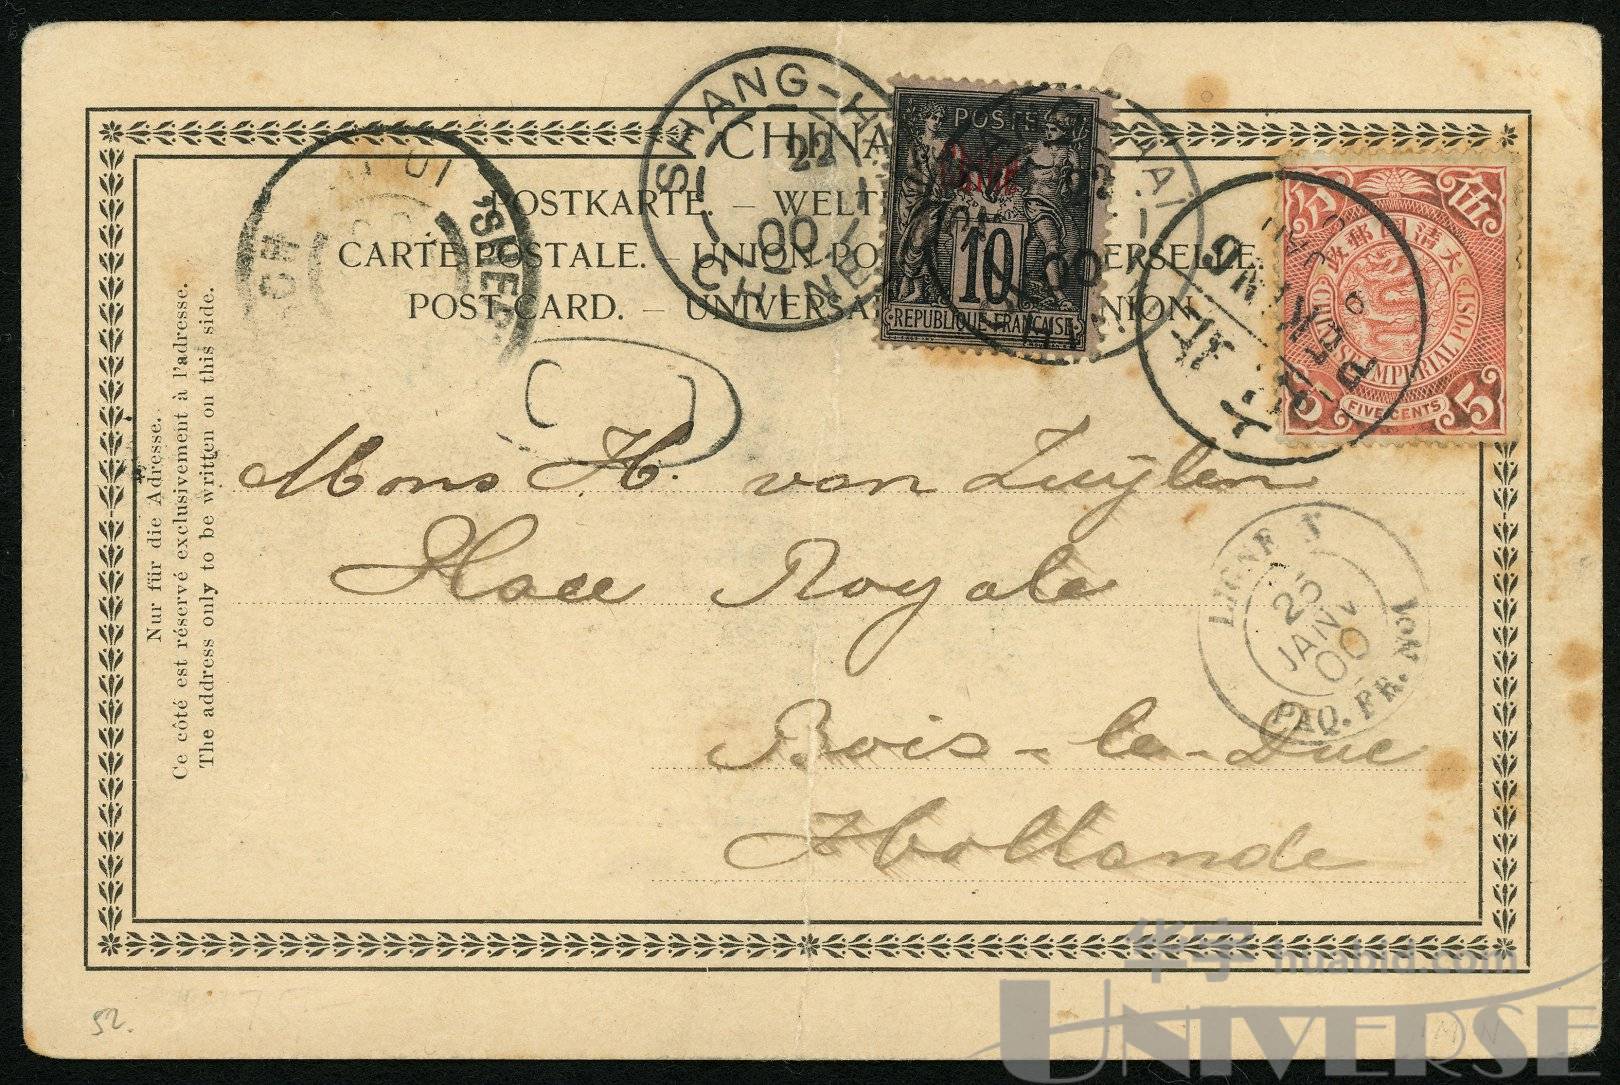 CHINA
POSTKARTE. –
CARTE POSTALE. – UNION
POST CARD. –
Nur für die Adresse.
Ce côté est réservé exclusivement à l'adresse.
The address only to be written on this side.
SHANG-H
22
00
CHINE
POSTE
Chine
10
REPUBLIQUE FRANÇAISE
00
分 伍
大清國郵政
CHINESE IMPERIAL POST
5 FIVE CENTS 5
Mons H. van Zuijlen
Place Royale
Bois-le-Duc
Hollande
LIGNE N
25
JANV
00
PAQ. FR. No
52.
华宇 huabid.com
UNIVERSE